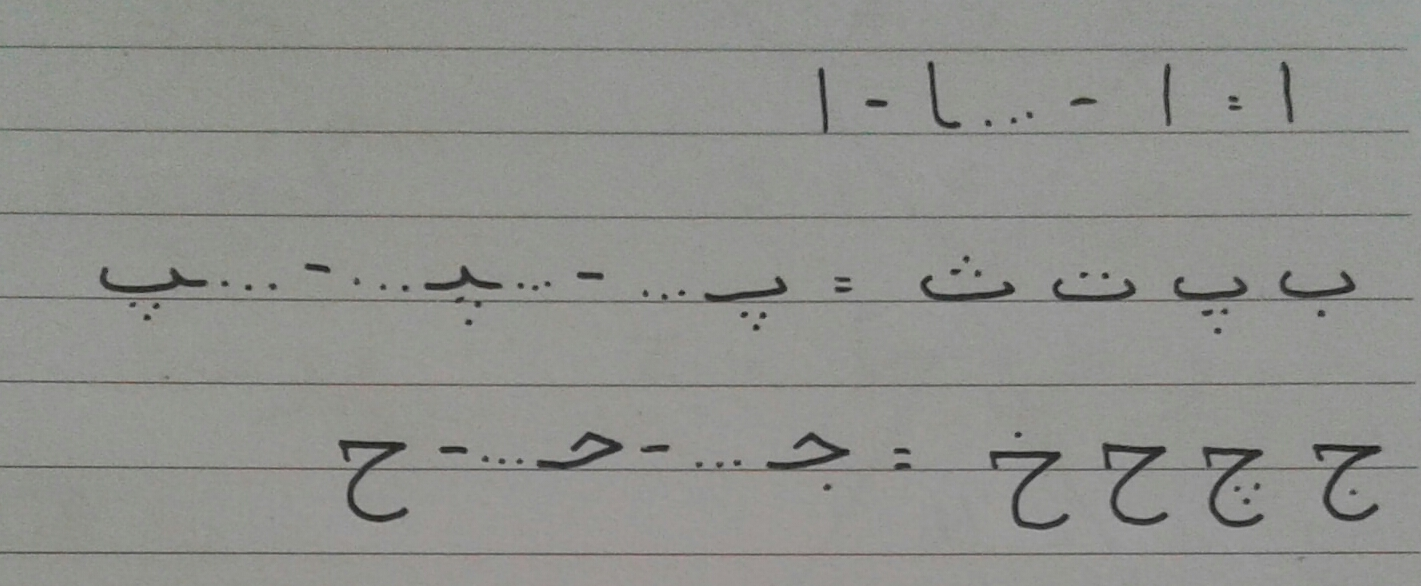 ا = ا - ...ـا - ا
ب پ ت ث = پـ... - ...ـپـ... - ...ـپ
ج چ ح خ = جـ... - حـ... - ح